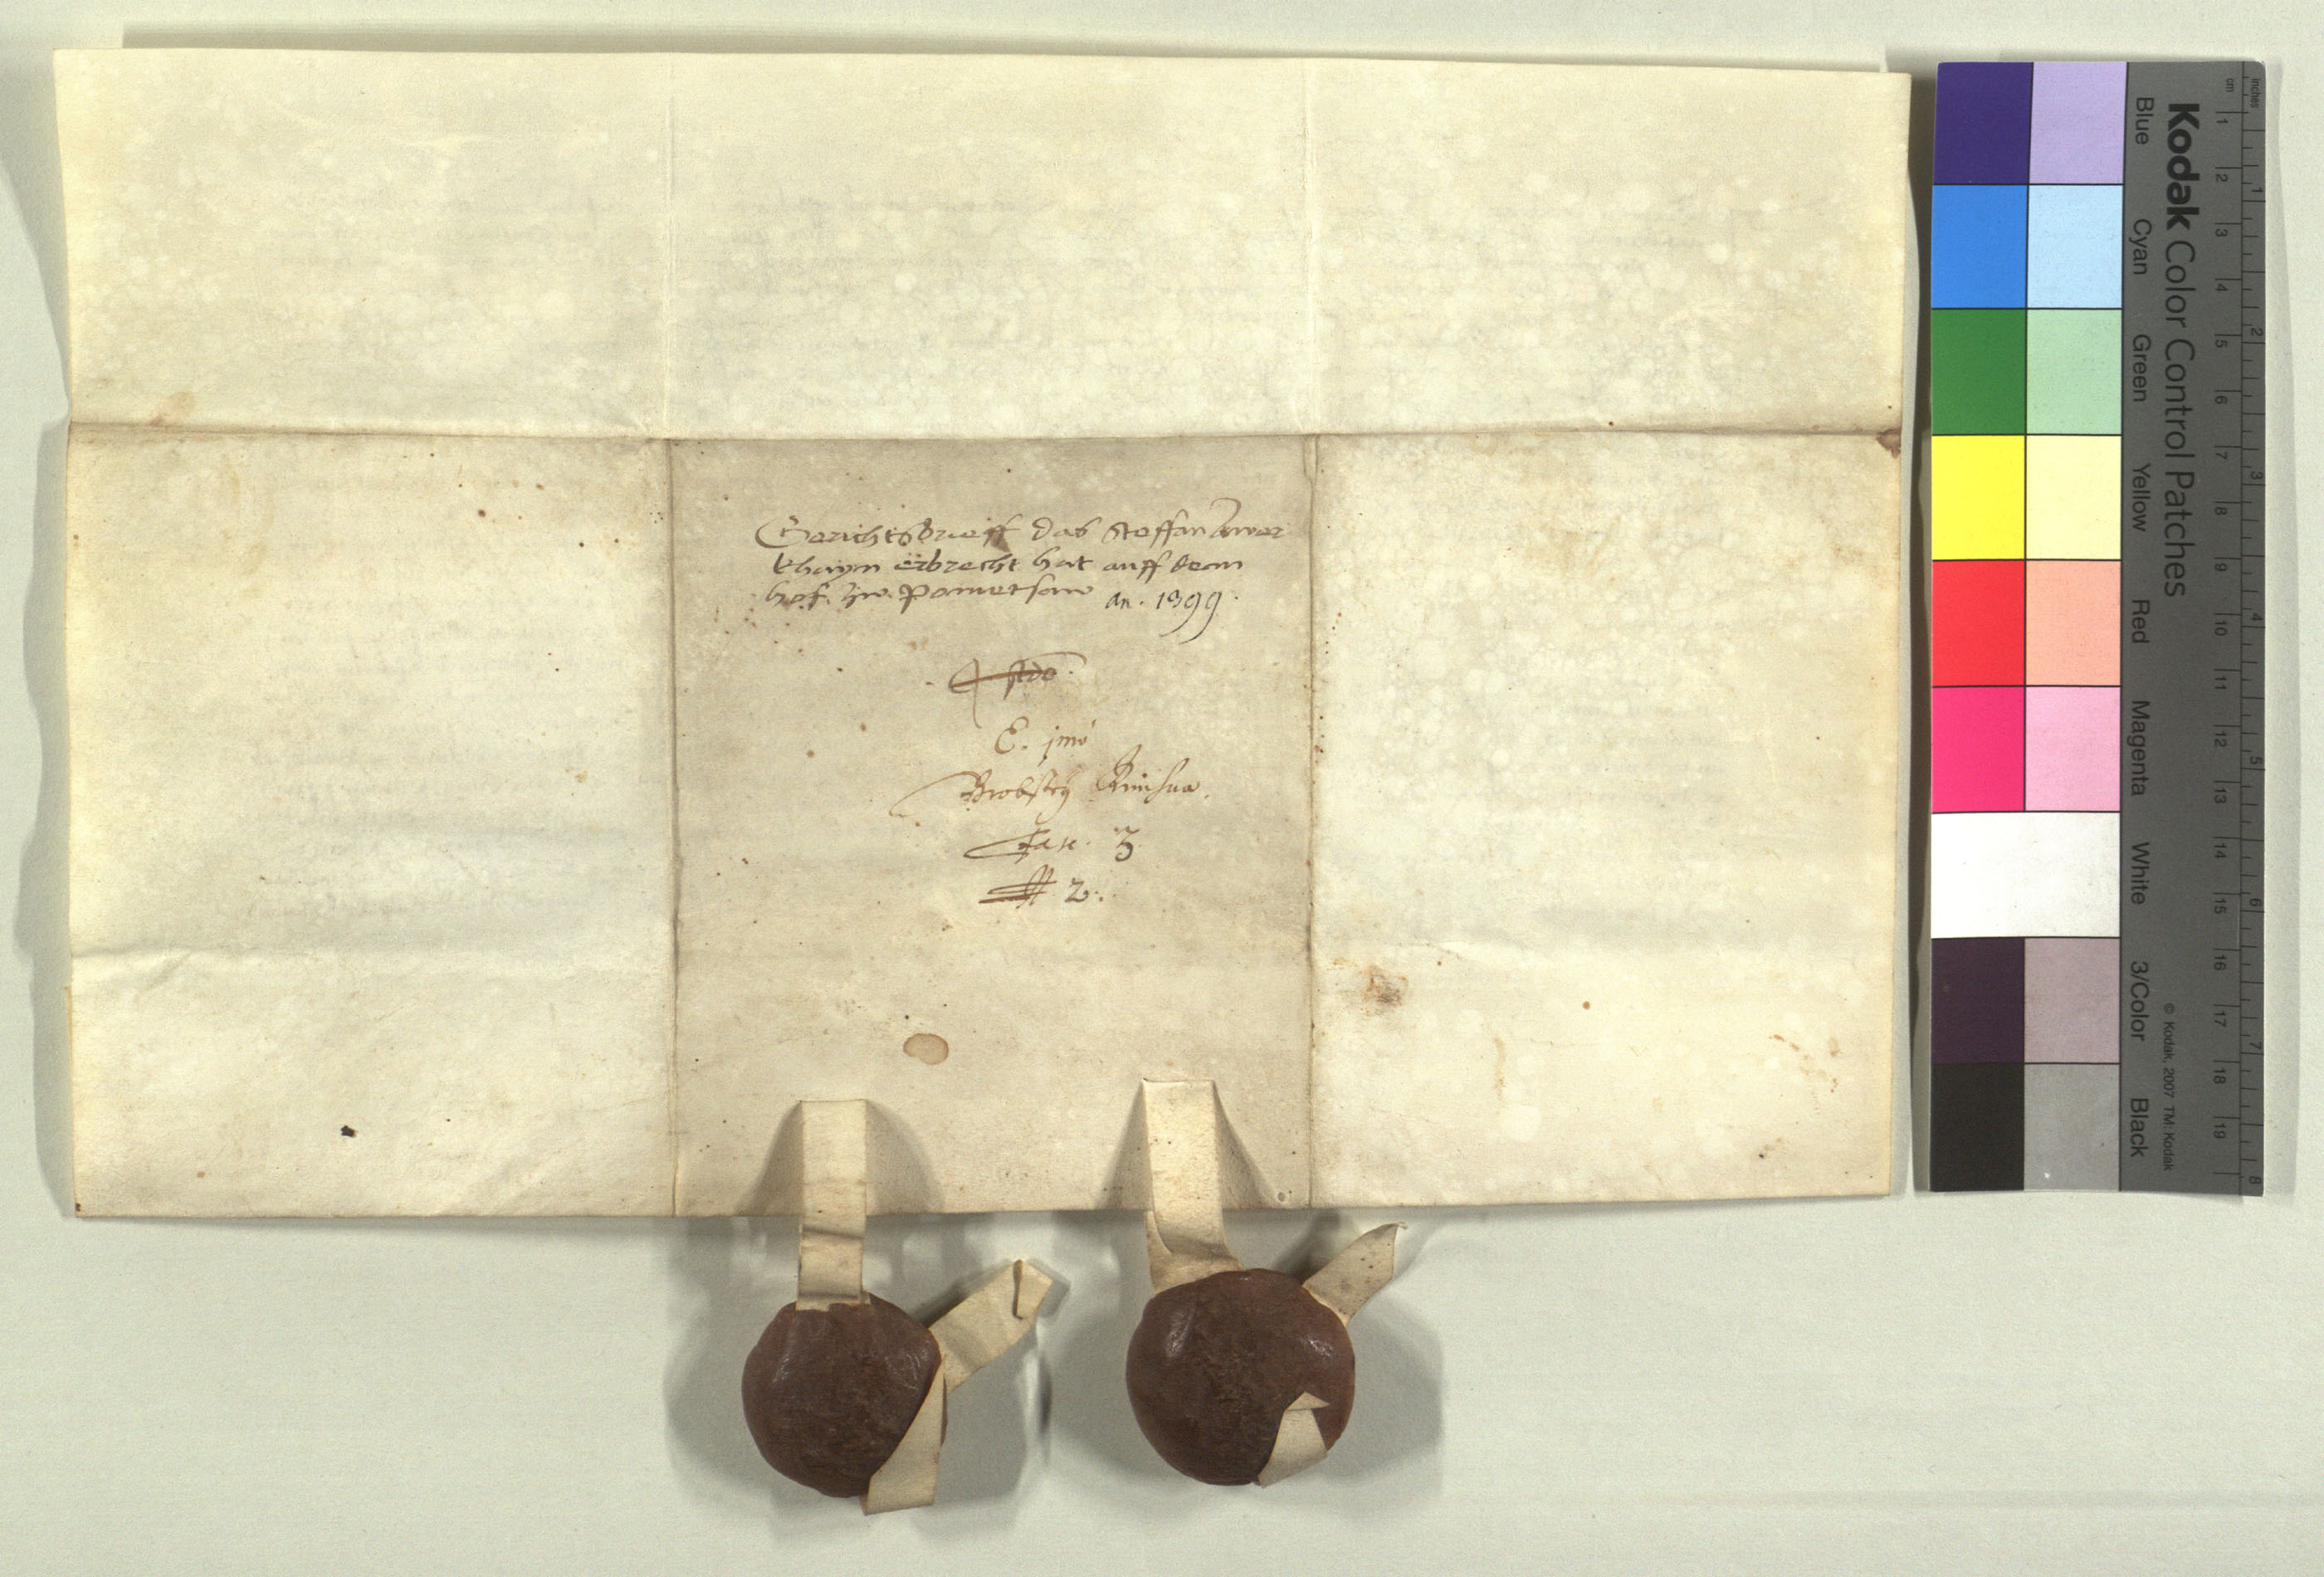 Gerichtsbrieff das Steffan Awer
khaym erbrecht hat auff dem
hof. zw. Pometsaw an. 1399.
E. jmo
Brobstey
Fasc. 3
# 2.
Kodak Color Control Patches
Blue Cyan Green Yellow Red Magenta White 3/Color Black
© Kodak, 2007 TM: Kodak
inches 1 2 3 4 5 6 7 8
cm 1 2 3 4 5 6 7 8 9 10 11 12 13 14 15 16 17 18 19